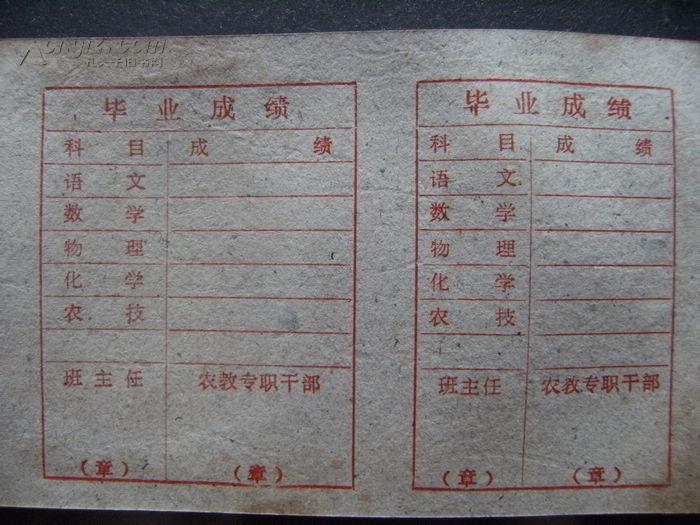 孔夫子旧书网
毕业成绩
科目 成绩
语文
数学
物理
化学
农技
班主任 农教专职干部
（章） （章）
毕业成绩
科目 成绩
语文
数学
物理
化学
农技
班主任 农教专职干部
（章） （章）